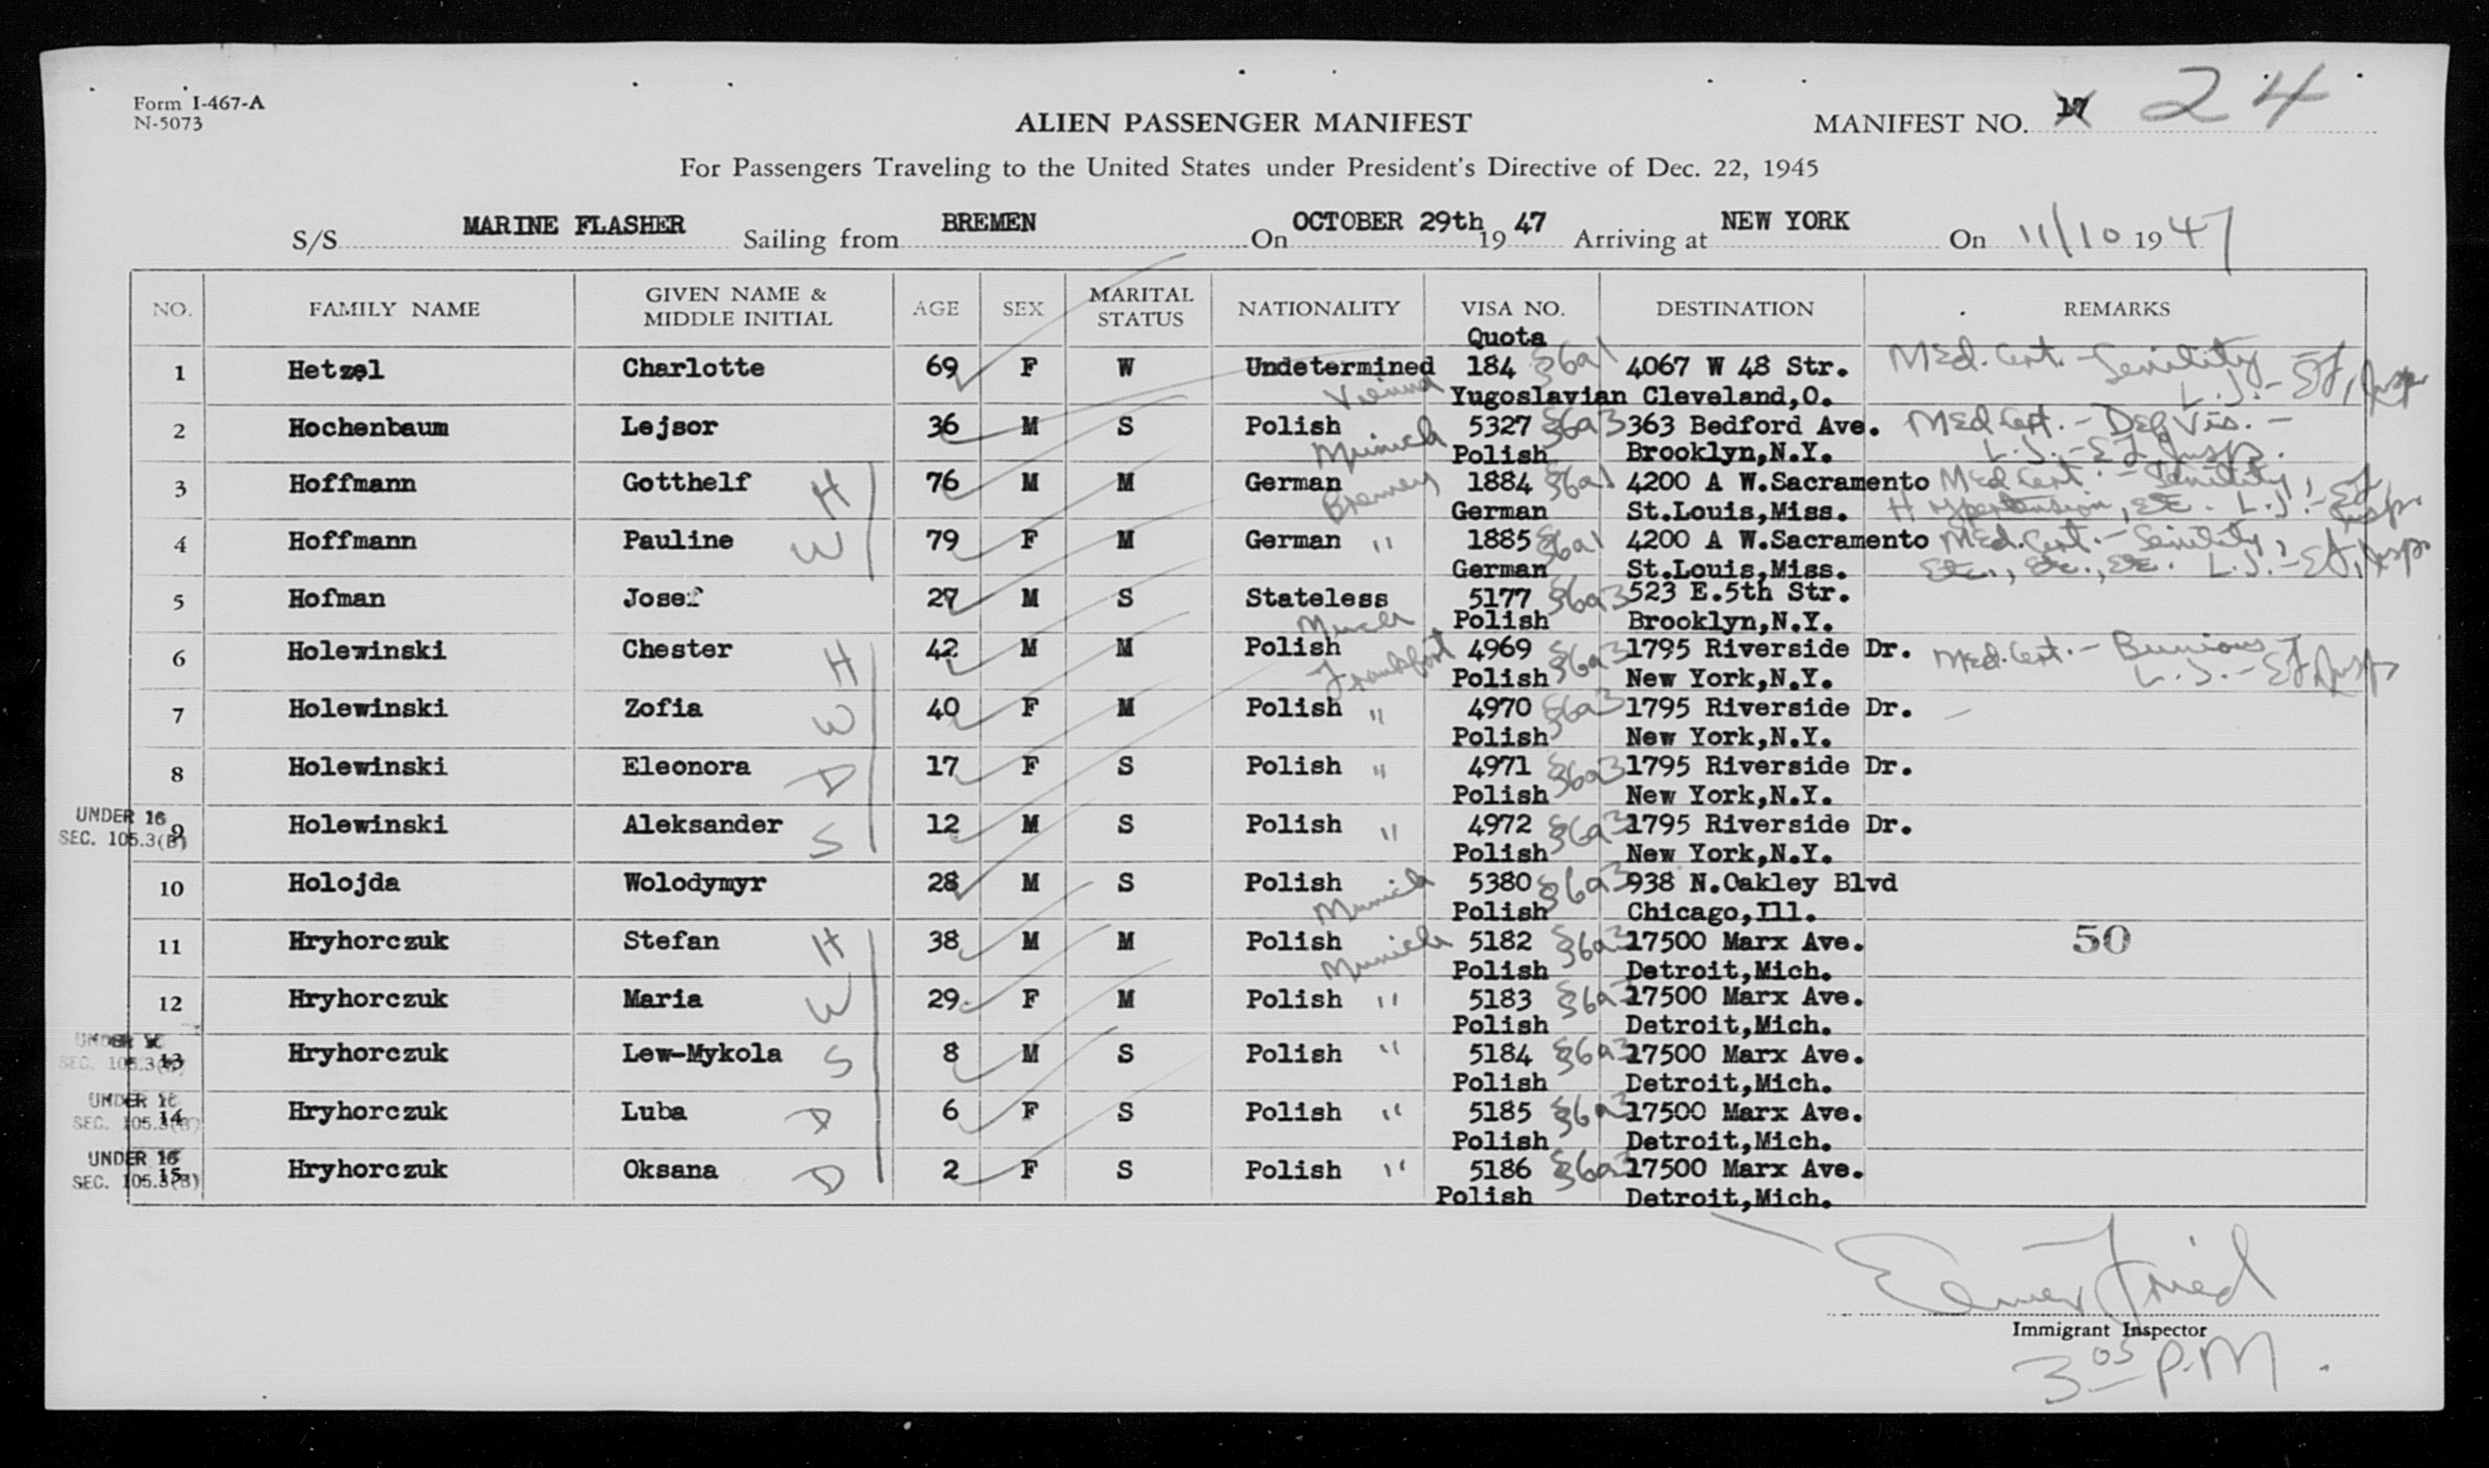 Form I-467-A
N-5073
ALIEN PASSENGER MANIFEST
MANIFEST NO. 17 24
For Passengers Traveling to the United States under President's Directive of Dec. 22, 1945
S/S MARINE FLASHER Sailing from BREMEN On OCTOBER 29th 19 47 Arriving at NEW YORK On 11/10 19 47
NO. FAMILY NAME GIVEN NAME & MIDDLE INITIAL AGE SEX MARITAL STATUS NATIONALITY VISA NO. DESTINATION REMARKS
Quota
1 Hetzel Charlotte 69 F W Undetermined 184 §6a1 4067 W 48 Str. Med. Cert. - Senility
Vienna Yugoslavian Cleveland,O. L.J. - EF, Insp
2 Hochenbaum Lejsor 36 M S Polish 5327 §6a3 363 Bedford Ave. Med Cert. - Def Vis. -
Munich Polish Brooklyn,N.Y. L.J. - EF Insp.
3 Hoffmann Gotthelf H 76 M M German 1884 §6a1 4200 A W.Sacramento Med Cert. - Senility,
Bremen German St.Louis,Miss. Hypertension, etc. L.J. - EF Insp.
4 Hoffmann Pauline W 79 F M German " 1885 §6a1 4200 A W.Sacramento Med. Cert. - Senility,
German St.Louis,Miss. Etc., Etc., Etc. L.J. - EF, Insp
5 Hofman Josef 27 M S Stateless 5177 §6a3 523 E.5th Str.
Polish Brooklyn,N.Y.
6 Holewinski Chester H 42 M M Polish 4969 §6a3 1795 Riverside Dr. Med. Cert. - Bunions
Frankfort Polish New York,N.Y. L.J. - EF Insp
7 Holewinski Zofia W 40 F M Polish " 4970 §6a3 1795 Riverside Dr. -
Polish New York,N.Y.
8 Holewinski Eleonora D 17 F S Polish " 4971 §6a3 1795 Riverside Dr.
Polish New York,N.Y.
UNDER 16
SEC. 105.3(B)
9 Holewinski Aleksander S 12 M S Polish " 4972 §6a3 1795 Riverside Dr.
Polish New York,N.Y.
10 Holojda Wolodymyr 28 M S Polish 5380 §6a3 938 N.Oakley Blvd
Munich Polish Chicago,Ill.
11 Hryhorczuk Stefan H 38 M M Polish 5182 §6a3 17500 Marx Ave. 50
Munich Polish Detroit,Mich.
12 Hryhorczuk Maria W 29 F M Polish " 5183 §6a3 17500 Marx Ave.
Polish Detroit,Mich.
UNDER 16
SEC. 105.3(B)
13 Hryhorczuk Lew-Mykola S 8 M S Polish " 5184 §6a3 17500 Marx Ave.
Polish Detroit,Mich.
UNDER 16
SEC. 105.3(B)
14 Hryhorczuk Luba D 6 F S Polish " 5185 §6a3 17500 Marx Ave.
Polish Detroit,Mich.
UNDER 16
SEC. 105.3(B)
15 Hryhorczuk Oksana D 2 F S Polish " 5186 §6a3 17500 Marx Ave.
Polish Detroit,Mich.
Elmer Fried
Immigrant Inspector
3 05 P.M.